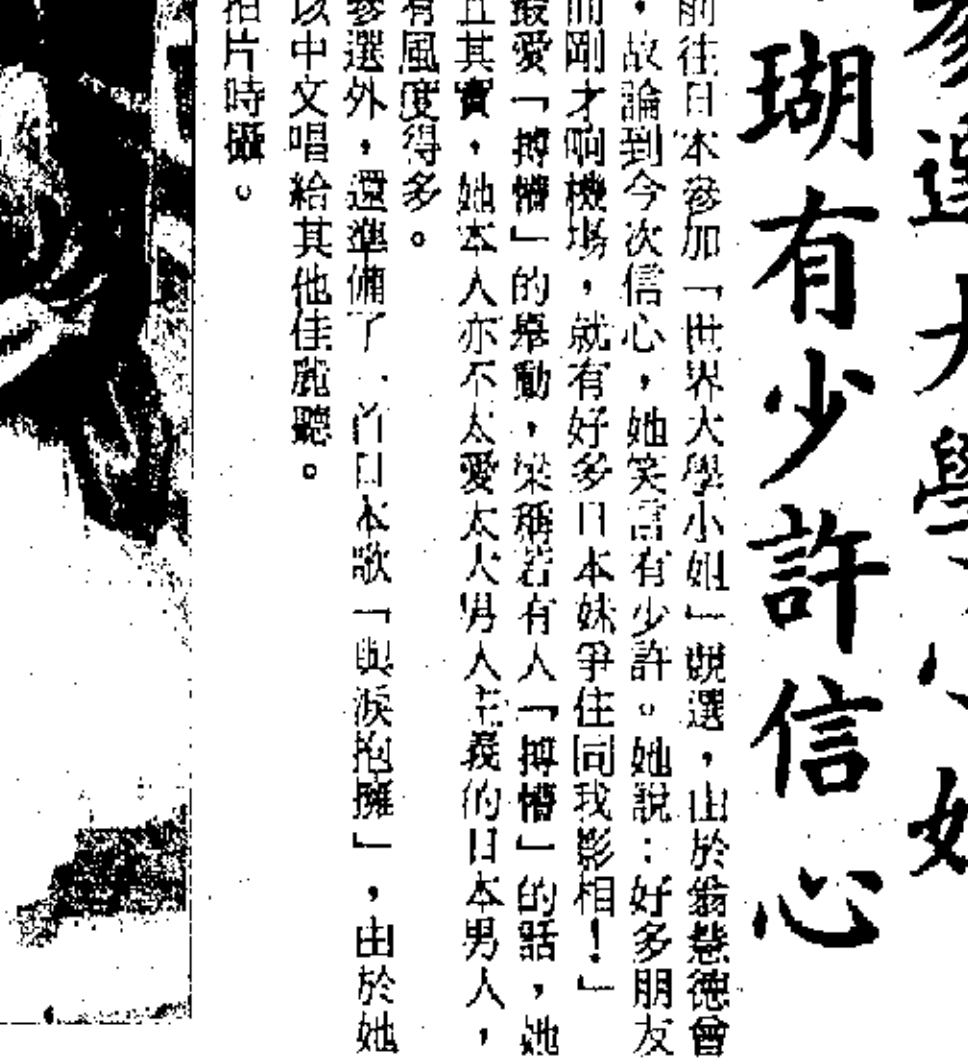 參選大學小姐
瑚有少許信心
前往日本參加「世界大學小姐」競選，由於翁慧德曾
，故論到今次信心，她笑言有少許。她說：好多朋友
而剛才响機場，就有好多日本妹爭住同我影相！」
最愛「搏懵」的舉動，梁稱若有人「搏懵」的話，她
且其實，她本人亦不太愛太大男人主義的日本男人，
有風度得多。
參選外，還準備了一首日本歌「與淚抱擁」，由於她
以中文唱給其他佳麗聽。
拍片時攝。